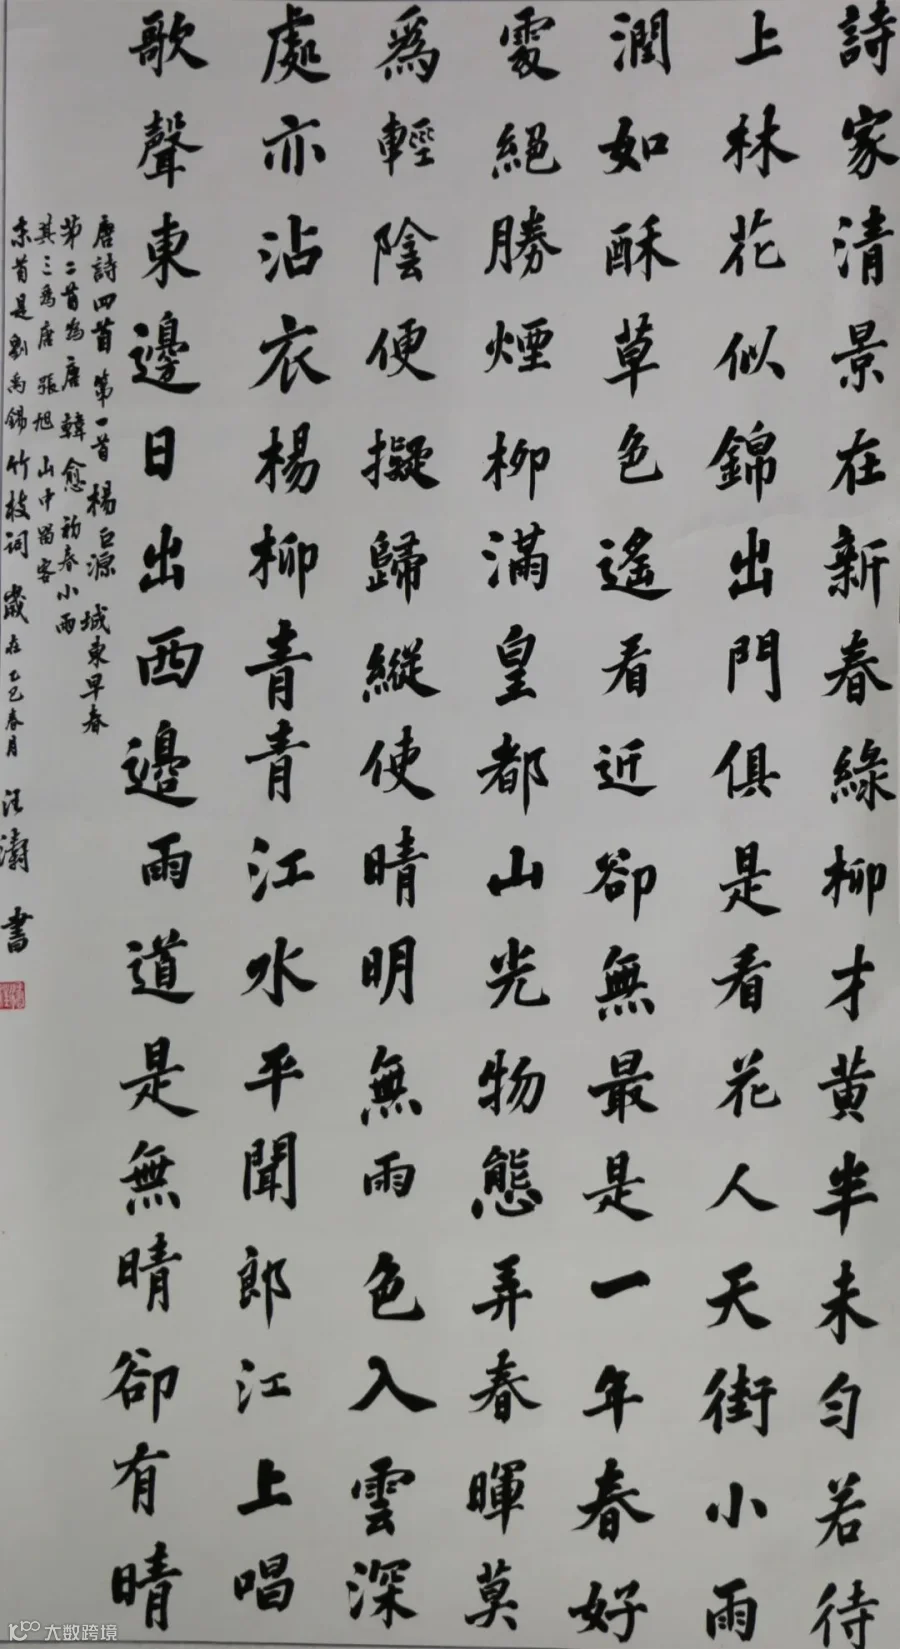 詩家清景在新春綠柳才黃半未勻若待
上林花似錦出門俱是看花人天街小雨
潤如酥草色遙看近卻無最是一年春好
處絕勝煙柳滿皇都山光物態弄春暉莫
爲輕陰便擬歸縱使晴明無雨色入雲深
處亦沾衣楊柳青青江水平聞郎江上唱
歌聲東邊日出西邊雨道是無晴卻有晴
唐詩四首第一首楊巨源城東早春
第二首為唐韓愈初春小雨
其三爲唐張旭山中留客
末首是劉禹錫竹枝词歲在乙巳春月汪濤書
大数跨境